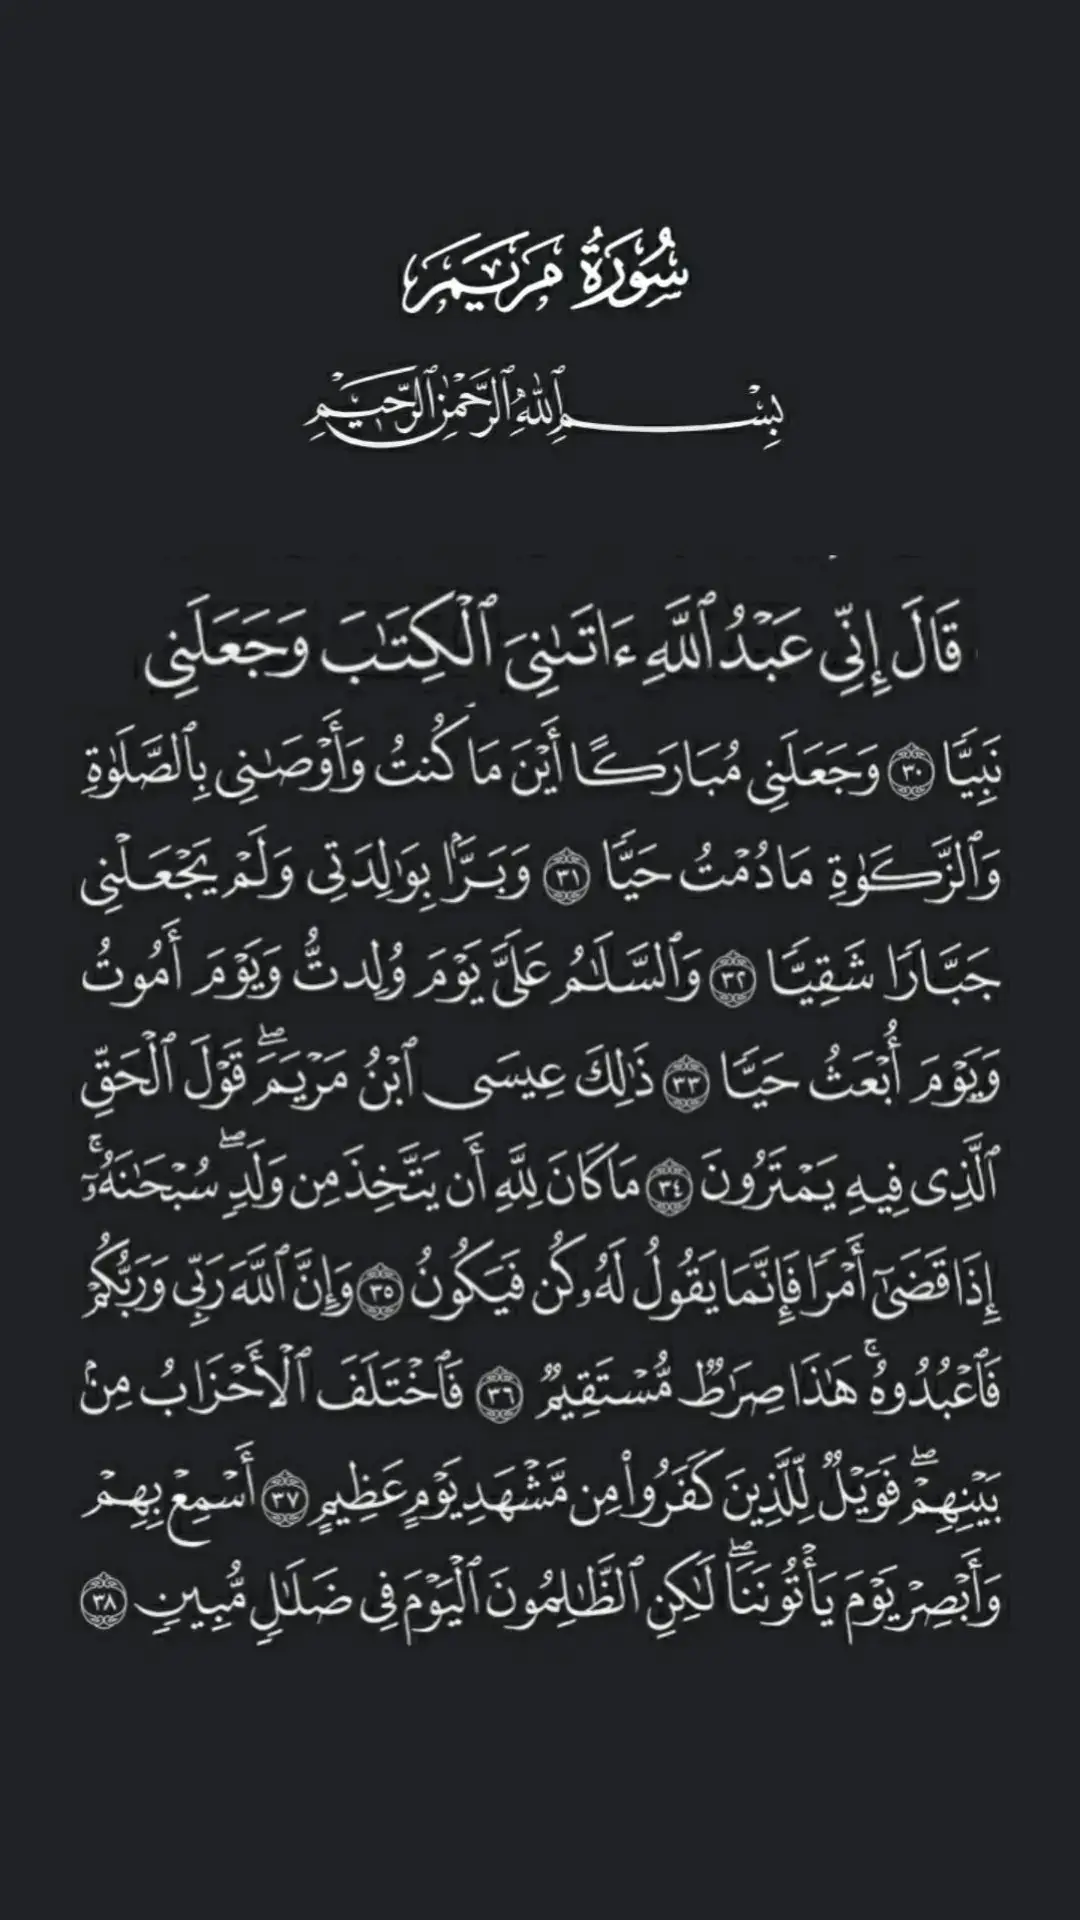 سُورَةُ مَرْيَمَ
بِسْمِ ٱللَّهِ ٱلرَّحْمَٰنِ ٱلرَّحِيمِ
قَالَ إِنِّى عَبْدُ ٱللَّهِ ءَاتَىٰنِىَ ٱلْكِتَٰبَ وَجَعَلَنِى
نَبِيًّا ٣٠ وَجَعَلَنِى مُبَارَكًا أَيْنَ مَا كُنتُ وَأَوْصَٰنِى بِٱلصَّلَوٰةِ
وَٱلزَّكَوٰةِ مَا دُمْتُ حَيًّا ٣١ وَبَرًّۢا بِوَٰلِدَتِى وَلَمْ يَجْعَلْنِى
جَبَّارًا شَقِيًّا ٣٢ وَٱلسَّلَٰمُ عَلَىَّ يَوْمَ وُلِدتُّ وَيَوْمَ أَمُوتُ
وَيَوْمَ أُبْعَثُ حَيًّا ٣٣ ذَٰلِكَ عِيسَى ٱبْنُ مَرْيَمَ ۖ قَوْلَ ٱلْحَقِّ
ٱلَّذِى فِيهِ يَمْتَرُونَ ٣٤ مَا كَانَ لِلَّهِ أَن يَتَّخِذَ مِن وَلَدٍ ۖ سُبْحَٰنَهُۥٓ ۚ
إِذَا قَضَىٰٓ أَمْرًا فَإِنَّمَا يَقُولُ لَهُۥ كُن فَيَكُونُ ٣٥ وَإِنَّ ٱللَّهَ رَبِّى وَرَبُّكُمْ
فَٱعْبُدُوهُ ۚ هَٰذَا صِرَٰطٌ مُّسْتَقِيمٌ ٣٦ فَٱخْتَلَفَ ٱلْأَحْزَابُ مِنۢ
بَيْنِهِمْ ۖ فَوَيْلٌ لِّلَّذِينَ كَفَرُوا۟ مِن مَّشْهَدِ يَوْمٍ عَظِيمٍ ٣٧ أَسْمِعْ بِهِمْ
وَأَبْصِرْ يَوْمَ يَأْتُونَنَا ۖ لَٰكِنِ ٱلظَّٰلِمُونَ ٱلْيَوْمَ فِى ضَلَٰلٍ مُّبِينٍ ٣٨